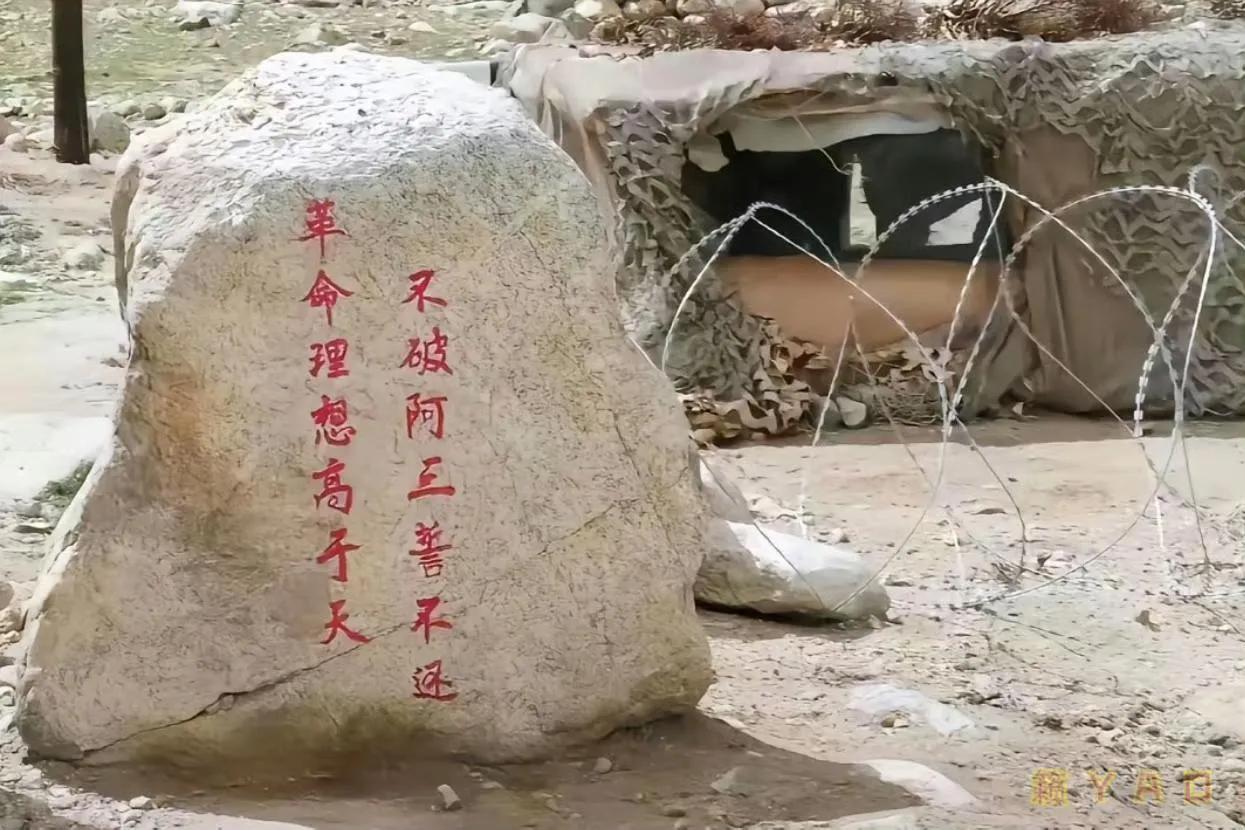 革命理想高于天
不破阿三誓不还
YAO